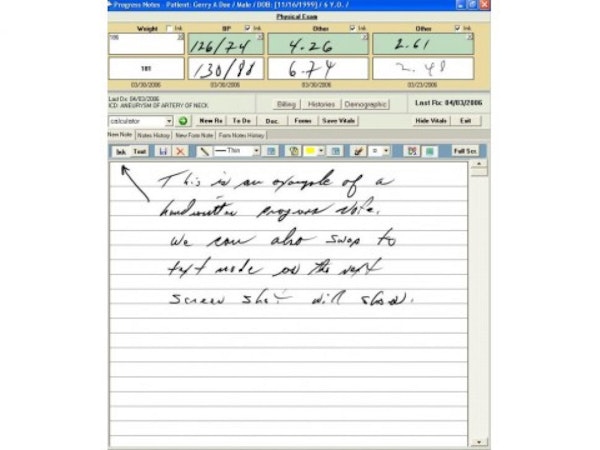 Progress Notes - Patient: Gerry A Doe / Male / DOB: [11/16/1999] / 6 Y.O. /
Physical Exam
Weight Ink BP Ink Other Ink Other Ink
186 126/74 4.26 2.61
181 130/88 6.74 2.48
03/30/2006 03/30/2006 03/30/2006 03/23/2006
Last Dx: 04/03/2006
ICD: ANEURYSM OF ARTERY OF NECK
Billing Histories Demographic Last Rx: 04/03/2006
calculator New Rx To Do Doc. Forms Save Vitals Hide Vitals Exit
New Note Notes History New Form Note Form Notes History
Ink Text Thin Full Scr.
This is an example of a
handwritten progress note.
We can also swap to
text mode as the next
screen shot will show.